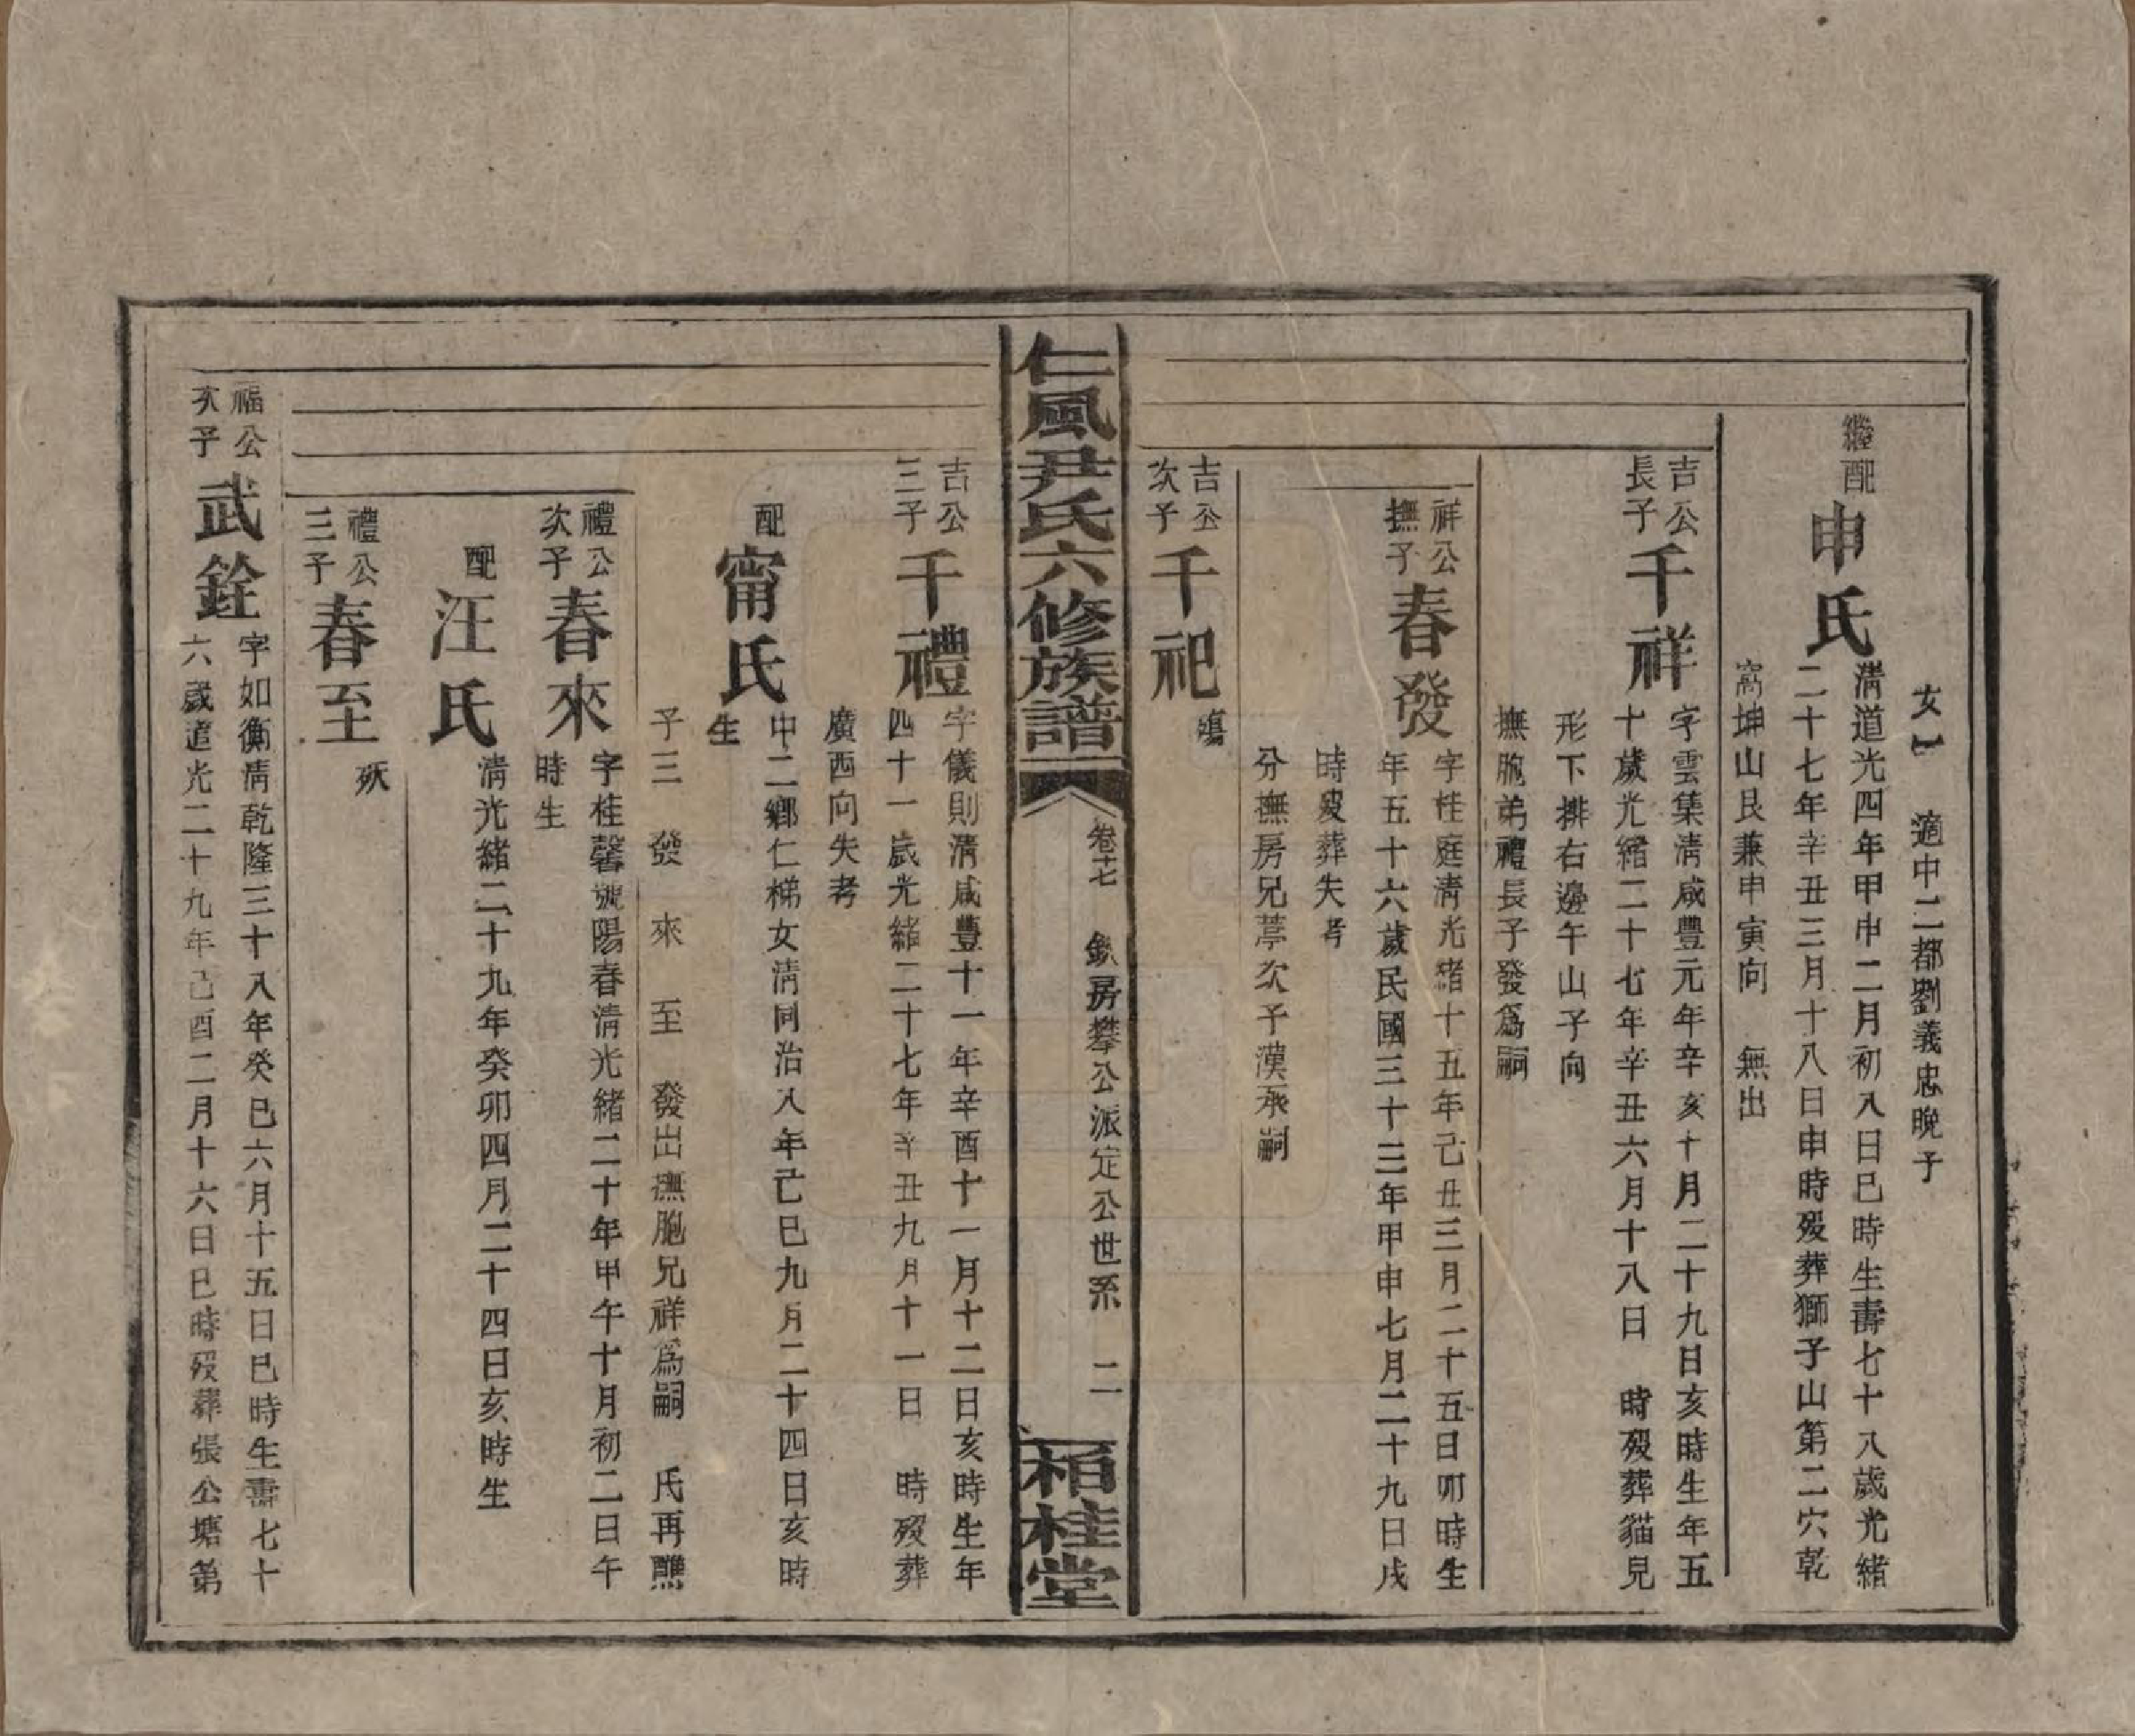 女一 適中二都劉義忠晚子
繼配
申氏
清道光四年甲申二月初八日巳時生壽七十八歲光緒
二十七年辛丑三月十八日申時歿葬獅子山第二穴乾
窩坤山艮兼申寅向 無出
吉公
長子
千祥
字雲集清咸豐元年辛亥十月二十九日亥時生年五
十歲光緒二十七年辛丑六月十八日 時歿葬貓兒
形下排右邊午山子向
撫胞弟禮長子發爲嗣
祥公
撫子
春發
字桂庭清光緒十五年己丑三月二十五日卯時生
年五十六歲民國三十三年甲申七月二十九日戌
時歿葬失考
分撫房兄葶次子漢承嗣
吉公
次子
千祀
殤
仁風尹氏六修族譜
卷十七 欽房攀公派定公世系 二
栢桂堂
吉公
三子
千禮
字儀則清咸豐十一年辛酉十一月十二日亥時生年
四十一歲光緒二十七年辛丑九月十一日 時歿葬
廣西向失考
配
甯氏
中二鄉仁梯女清同治八年己巳九月二十四日亥時
生
子三 發 來 至 發出撫胞兄祥爲嗣 氏再醮
禮公
次子
春來
字桂馨號陽春清光緒二十年甲午十月初二日午
時生
配
汪氏
清光緒二十九年癸卯四月二十四日亥時生
禮公
三子
春至
歿
福公
次子
武銓
字如衡清乾隆三十八年癸巳六月十五日巳時生壽七十
六歲道光二十九年己酉二月十六日巳時歿葬張公塘第